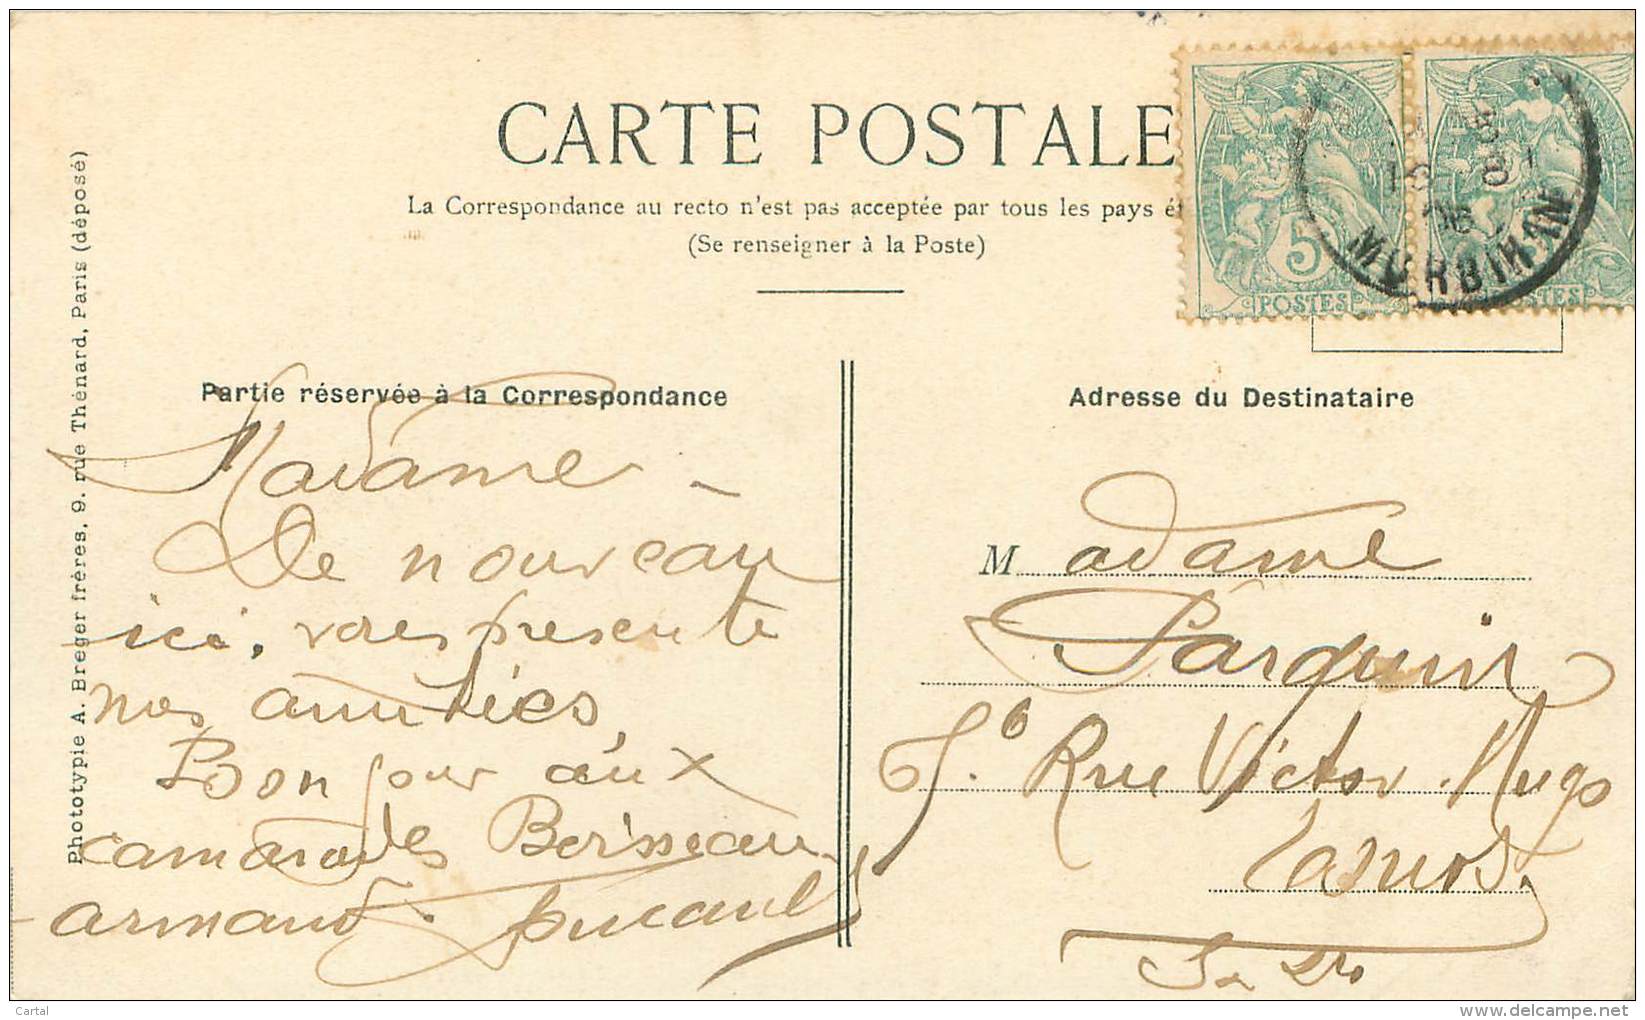 CARTE POSTALE
La Correspondance au recto n'est pas acceptée par tous les pays ét
(Se renseigner à la Poste)
5
POSTES
STES
MORBIHAN
Phototypie A. Breger frères, 9, rue Thénard, Paris (déposé)
Partie réservée à la Correspondance
Madame -
De nouveau
ici, vous presente
nos amitiés
Bonjour aux
camarades Boisseau
armand
Adresse du Destinataire
Madame
Parquin
Rue Victor Hugo
Cartal
www.delcampe.net